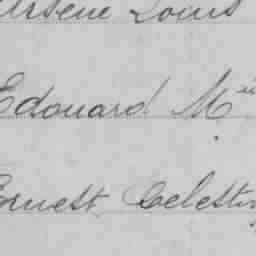 Arsène Louis
Edouard Mie
Ernest Celestin